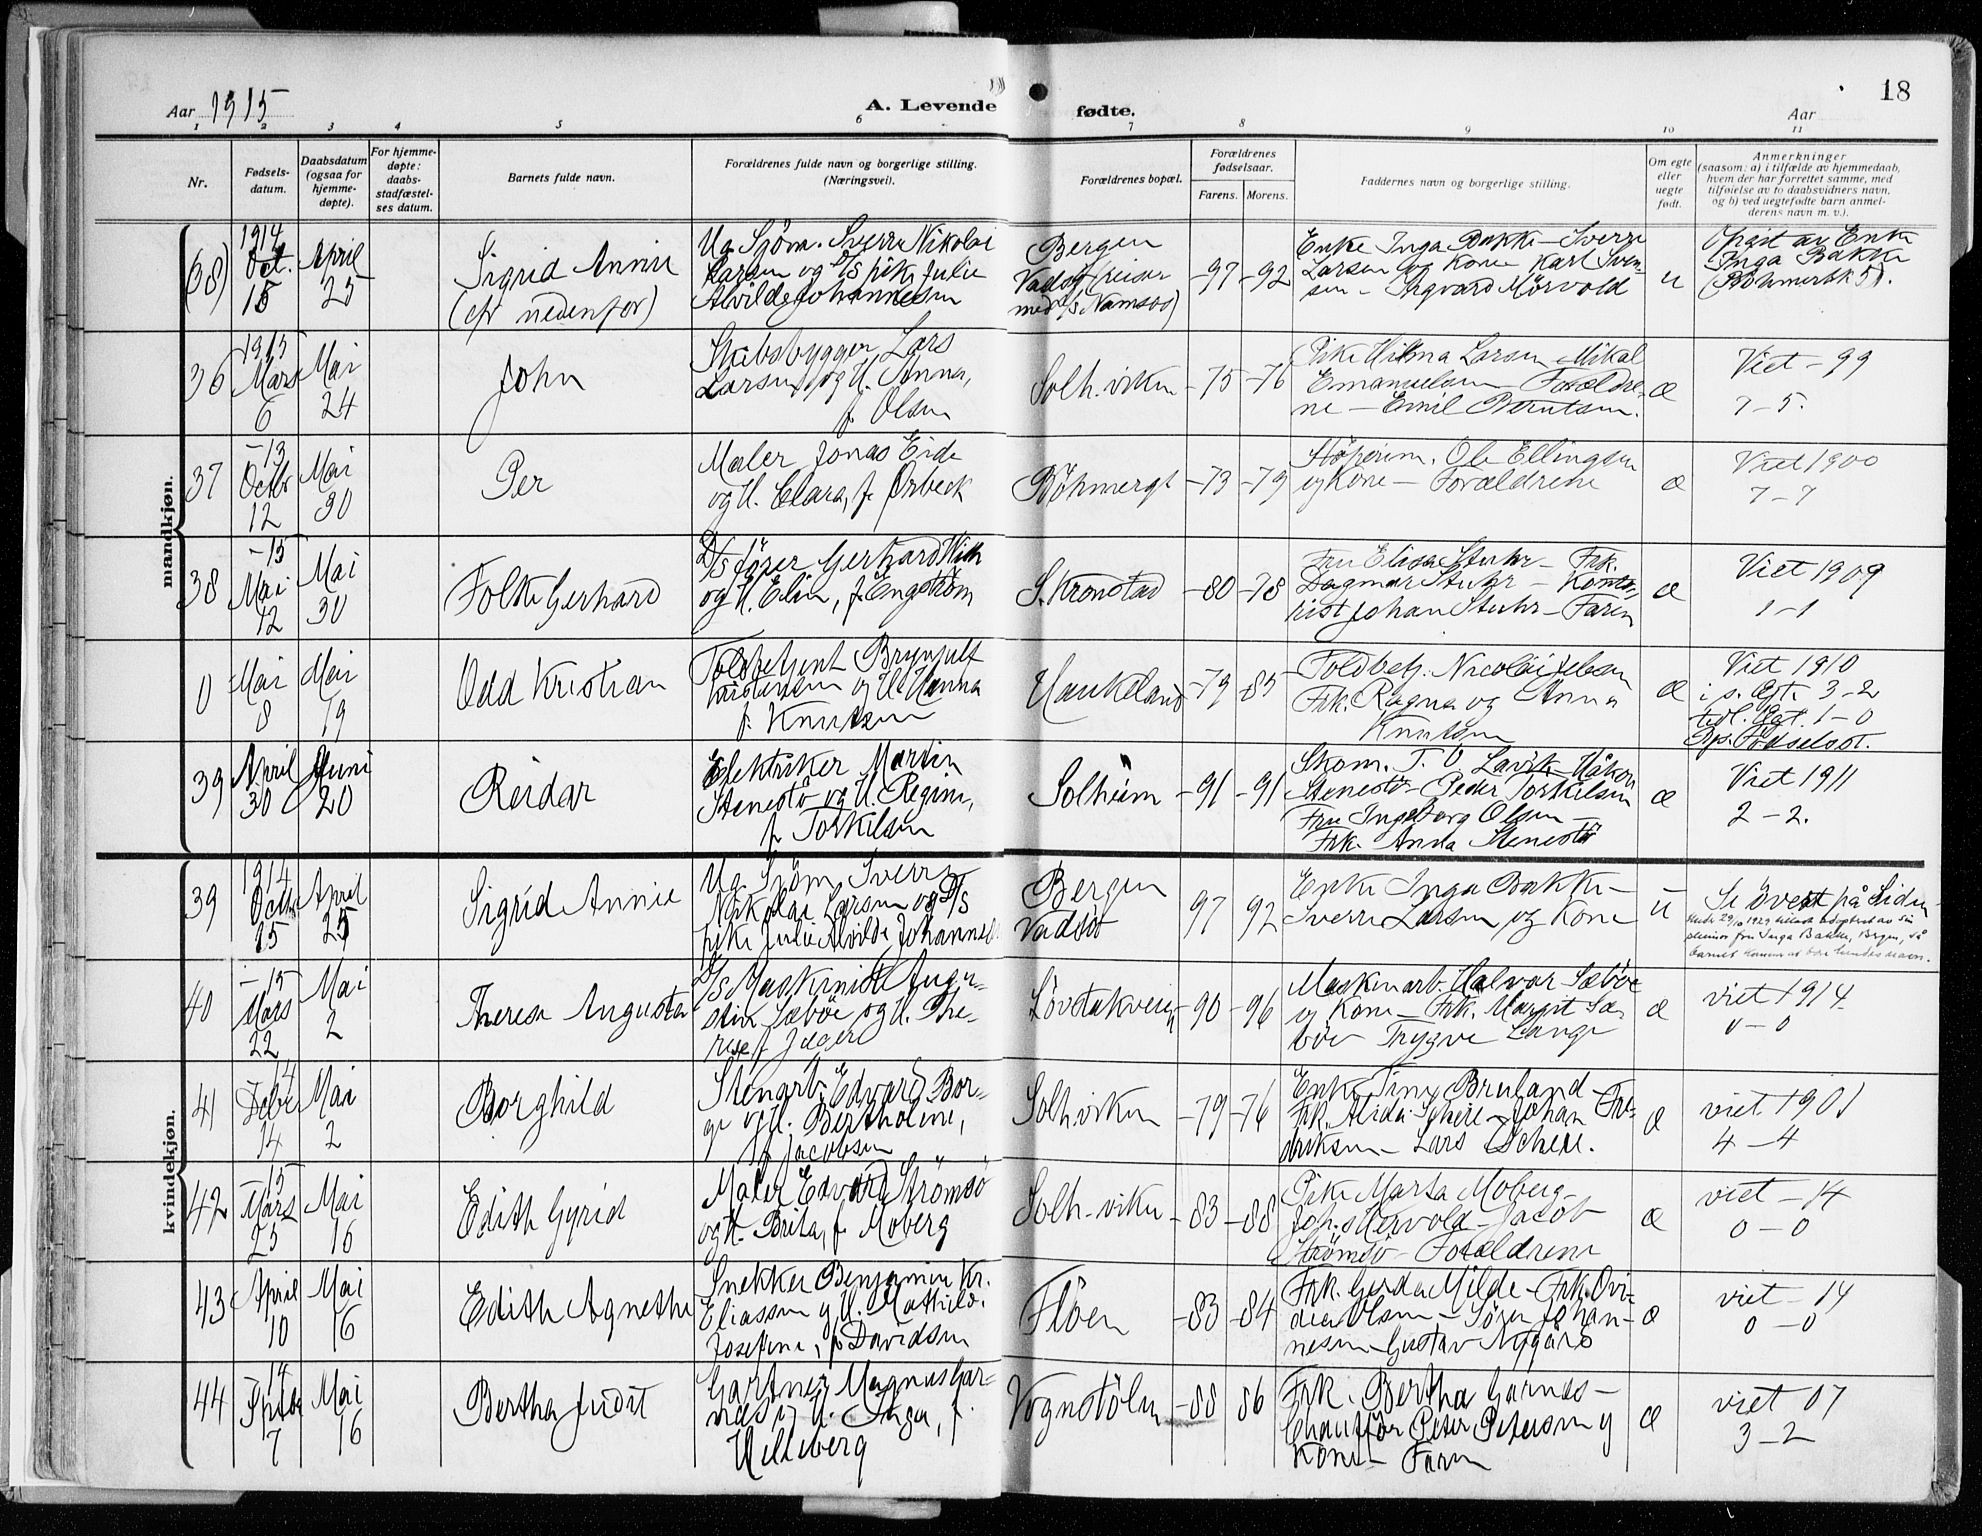 Aar 1915
A. Levende fødte.
Aar
18
1 2 3 4 5 6 7 8 9 10 11
Nr.
Fødsels-
datum.
Daabsdatum
(ogsaa for
hjemme-
døpte).
For hjemme-
døpte:
daabs-
stadfæstel-
ses datum.
Barnets fulde navn.
Forældrenes fulde navn og borgerlige stilling.
(Næringsvei).
Forældrenes bopæl.
Forældrenes
fødselsaar.
Farens. Morens.
Faddernes navn og borgerlige stilling.
Om egte
eller
uegte
født.
Anmerkninger
(saasom: a) i tilfælde av hjemmedaab,
hvem der har forrettet samme, med
tilføielse av to daabsvidners navn,
og b) ved uegtefødte barn anmel-
derens navn m. v.).
mandkjøn.
(38)
1914
Oct.
15
April
25
Sigrid Annie
(cfr nedenfor)
Ug. Sjöm. Sverre Nikolai
Larsen og D/S pike Julie
Alvilde Johannesen
Bergen
Vadsö (reiser
med D/S Namsos)
-97 -92
Enke Inga Bakke - Sverre
Larsen og Kone Karl Sven-
sen - Ingvard Mörvold
u
Opgit av Enke
Inga Bakke
36
1915
Mars
6
Mai
24
John
Skibsbygger Lars
Larsen og H. Anna,
f. Olsen
Solh.viken
-75 -76
Pike Hilma Larsen - Mikal
Emanuelsen - Forældre-
ne - Emil Berntsen.
æ
Viet - 99
7 - 5.
37
-13
Octbr
12
Mai
30
Per
Maler Jonas Eide
og H. Clara, f. Ørbeck
Böhmergt
-73 -79
Ole Ellingsen
og Kone - Forældrene
æ
Viet 1900
7 - 7
38
-15
Mai
12
Mai
30
Folke Gerhard
D/S förer Gerhard
og H. Elin, f. Engström
S. Kronstad
-80 -78
Fru Elisa Stuhr - Frk.
Dagmar Stuhr - Konto-
rist Johan Stuhr - Faren
æ
Viet 1909
1 - 1
0
Mai
8
Mai
19
Odd Kristian
Toldbetjent Brynjulf
Kristensen og H. Hanna
f. Knutsen
Haukeland
-79 -85
Toldbetj. Nicolai
Frk. Ragna og Anna
Knutsen
æ
Viet 1910
i s. Egt. 3 - 2
tidl. Egt. 1 - 0
39
April
30
Juni
20
Reidar
Elektriker Martin
Stenestö og H. Regine,
f. Torkilsen
Solheim
-91 -91
Skom. T. O. Lavik - Håkon
Stenestö - Peder Torkilsen
Fru Ingeborg Olsen -
Frk. Anna Stenestö
æ
Viet 1911
2 - 2.
kvindekjøn.
39
1914
Octbr
15
April
25
Sigrid Annie
Ug. Sjöm. Sverre
Nikolai Larsen og D/S
pike Julie Alvilde Johannes
Bergen
Vadsö
97 92
Enke Inga Bakke -
Sverre Larsen og Kone
u
Se övest på Siden
40
-15
Mars
22
Mai
2
Therese Augusta
D/S Maskinist Augu-
stin Sæböe og H. The-
rese f. Jæger
Lövstakveien
-90 -96
Maskinarb. Halvar Sæböe
og Kone - Frk. Margit Sæ-
böe - Trygve Lange
æ
viet 1914
0 - 0
41
14
Debr
14
Mai
2
Borghild
Stenarb. Edvard Bor-
ge og H. Bertholine,
f. Jacobsen
Solh.viken
-79 -76
Enke Tine Bruland -
Frk. Alida Scheie - Johan Fre-
driksen - Lars Scheie.
æ
viet 1901
4 - 4
42
-15
Mars
25
Mai
16
Edith Gyrid
Maler Edvard Strömsö
og H. Brita, f. Moberg
Solh.viken
-83 -88
Pike Marta Moberg -
Joh. Mervold - Jacob
Strömsö - Forældrene
æ
viet - 14
0 - 0
43
April
10
Mai
16
Edith Agnethe
Snekker Benjamin Kr.
Eliassen og H. Mathilde
Josefine, f. Davidsen
Flöen
-83 -84
Frk. Gerda Milde - Frk. Ovi-
dia Olsen - Sören Johan-
nesen - Gustav Nygård
æ
viet - 14
0 - 0
44
14
Septbr
7
Mai
16
Bertha Judit
Gartner Magnus Gar-
nes og H. Inga, f.
Helleberg
Vognstölen
-88 86
Frk. Bertha Garnes -
Chaufför Peter Petersen og
Kone - Faren
æ
viet 07
3 - 2